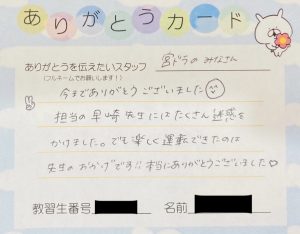 ありがとうカード
ありがとうを伝えたいスタッフ
(フルネームでお願いします!)
宮ドラの みなさん
今までありがとうございました
担当の早崎先生にはたくさん迷惑を
かけました。でも楽しく運転できたのは
先生のおかげです!!本当にありがとうございました♡
教習生番号
名前